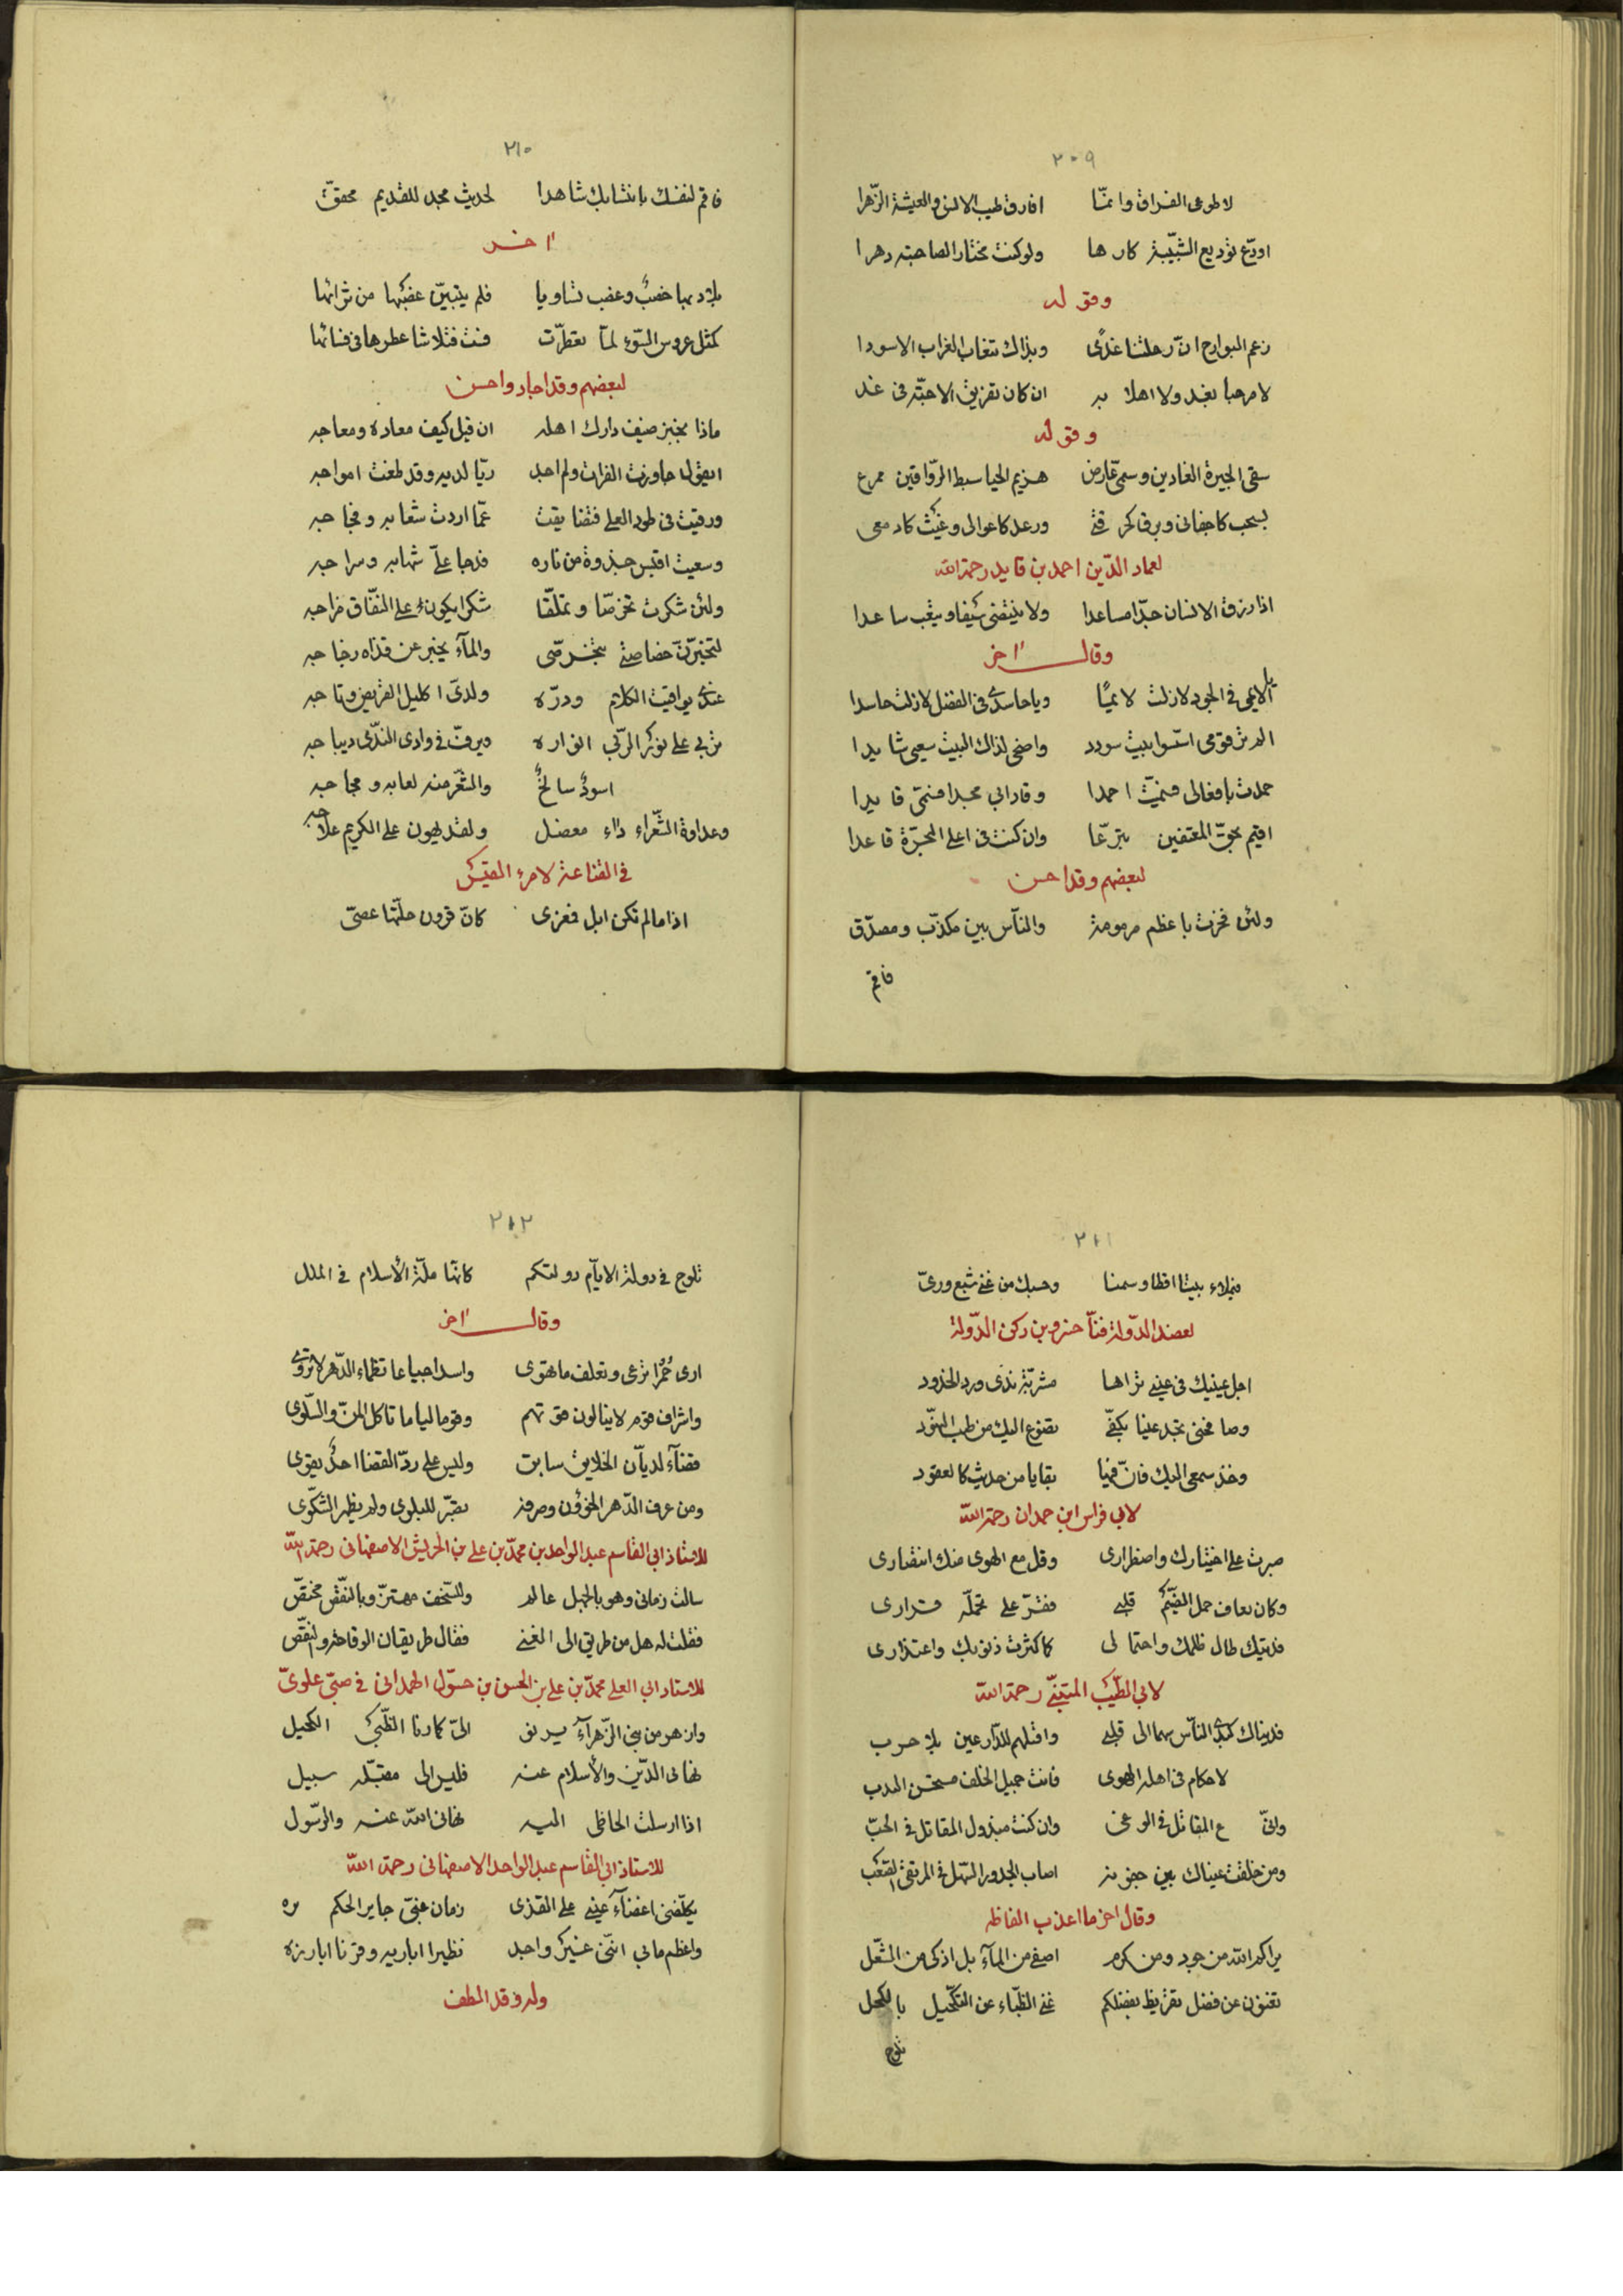 ٢٠٩
لاطوعى الفراق وانمّا افارق طيب الامن والعيشة الزّهرا
اودّع توديع الشّبيبة كارها ولو كنت مختارا لصاحبته دهرا
وقوله
زعم البوارح انّ رحلتنا غدًى وبذاك تنغاب الغراب الاسودا
لا مرحبا بغد ولا اهلا به ان كان تفريق الاحبّة فى غد
وقوله
سقى الجيرة الغادين وسمىّ عارض هزيم الحيا سبط الرّواقين ممرع
بسحب كاجفانى وبرق كحرقتى ورعد كاعوالى وغيث كادمعى
لعماد الدّين احمد بن قايد رحمة الله
اذا رزق الانسان جدّا مساعدا ولا ينتضى سيفا ويتعب ساعدا
وقال آخر
الايمى فى الجود لا زلت لائمًا ويا حاسدى فى الفضل لا زلت حاسدا
الم تر قومى اسّسوا بيت سودد واضحى لذاك البيت سعيى شايدا
حمدت بافعالى فسمّيت احمدا وقاد ابى مجدا فسمّى قايدا
اقيم بحقّ المعتفين تبرّعا وان كنت فى اعلى المجرّة قاعدا
لبعضهم وقد احسن
ولئن فخرت باعظم مرمومة والنّاس بين مكذّب ومصدّق
فاقم
٢١٠
فاقم لنفسك بانتسابك شاهدا لحديث مجد للقديم محقّق
آخر
بلاد بها خصبٌ وعضب تساويا فلم يتبيّن عضبها من ثرائها
كمثل عروس السّوء لمّا تعطّرت فست فتلاشا عطرها فى فسائها
لبعضهم وقد اجاد واحسن
ماذا يخبر ضيف دارك اهله ان قيل كيف معاده ومعاجه
ايقول جاورت الفرات ولم اجد ريّا لديه وقد طغت امواجه
ورقيت فى طود العلى فتضايقت عمّا اردت شعابه وفجاجه
وسعيت اقتبس جذوة من ناره فدجا علىّ شهابه وسراجه
ولئن شكرت تخرّصا وتملّقا شكرا يكون على النفّاق خراجه
لتخبّرنّ خصاصتى بتخرّصى والمآء يخبر عن قذاه زجاجه
عندى يواقيت الكلام ودرّه ولدىّ اكليل القريض وتاجه
تربى على نور الرّبى انواره ويرفّ فى وادى النّدى ديباجه
اسودٌ سالخٌ والشّعر منه لعابه ومجاجه
وعداوة الشّعراء داء معضل ولقد يهون على الكريم علاجه
فى القناعة لامرء القيس
اذا ما لم تكن ابل فمعزى كانّ قرون جلّتها عصىّ
٢١١
فيملاء بيتنا اقطا وسمنا وحسبك من غنى شبع ورىّ
لعضد الدّولة فنّا خسرو بن ركن الدّولة
اجل عينيك فى عينى تراها مشرّبة ندى ورد الخدود
وصافحنى تجد عبثا بكفّى يضوع اليك من طيب النهود
وخذ سمعى اليك فانّ فيها بقايا من حديث كالعقود
لابى فراس ابن حمدان رحمة الله
صبرت على اختيارك واضطرارى وقل مع الهوى منك انتصارى
وكان يعاف حمل الضّيم قلبى فقرّ على تحمّله قرارى
فديتك طال ظلمك واحتمالى كما كثرت ذنوبك واعتذارى
لابى الطّيّب المتنبّى رحمة الله
فديناك اهدى النّاس سهما الى قلبى واقتلهم للدّارعين بلا حرب
لاحكام فى اهله الهوى فانت جميل الخلف مستحسن الكذب
وانّى ع المقاتل فى الوغى وان كنت مبذول المقاتل فى الحبّ
ومن خلقت عيناك بين جفونه اصاب الحدور السّهل فى المرتقى الصّعب
وقال آخر ما اعذب الفاظه
براكم الله من جود ومن كرم اصفى من المآء بل اذكى من الشّعل
تغنون عن فضل تقريظ بفضلكم غنى الظّباء عن التكحّيل بالكحل
تلوح
٢١٢
تلوح فى دولة الايآم دولتكم كانّها ملّة الأسلام فى الملل
وقال آخر
ارى حُمُرا ترعى وتعلف ما تهوى واسدا جياعا تظماء الدّهر لا تروى
واشراف قوم لا ينالون قوتهم وقوما لياما تاكل المنّ والسّلوى
قضآء لديّان الخلايق سابق وليس على ردّ القضا احدٌ يقوى
ومن عرف الدّهر الخؤون وصرفه تصبّر للبلوى ولم يظهر الشّكوى
للاستاذ ابى القاسم عبد الواحد بن محمّد بن على بن الحريش الاصفهانى رحمة الله
سالت زمانى وهو بالجهل عالم وللسّخف مهتزّ وبالنّقص مختصّ
فقلت له هل من طريق الى الغنى فقال طريقان الوقاحة والنّقص
للاستاد ابى العلى محمّد بن على بن الحسن بن حسّول الهمدانى فى صبىّ علوىّ
وازهر من بنى الزّهرآء يرنو الىّ كما رنا الظّبى الكحيل
نهانى الدّين والأسلام عنه فليس الى مقبّله سبيل
اذا ارسلت الحاظى اليه نهانى الله عنه والرّسول
للاستاذ ابى القاسم عبد الواحد الاصفهانى رحمة الله
يكلّفنى اغضآء عينى على القذى زمان غبىّ جاير الحكم
واعظم ما بى انّنى غير واجد نظيرا اباريه وقرنا ابارزه
وله وقد الطف